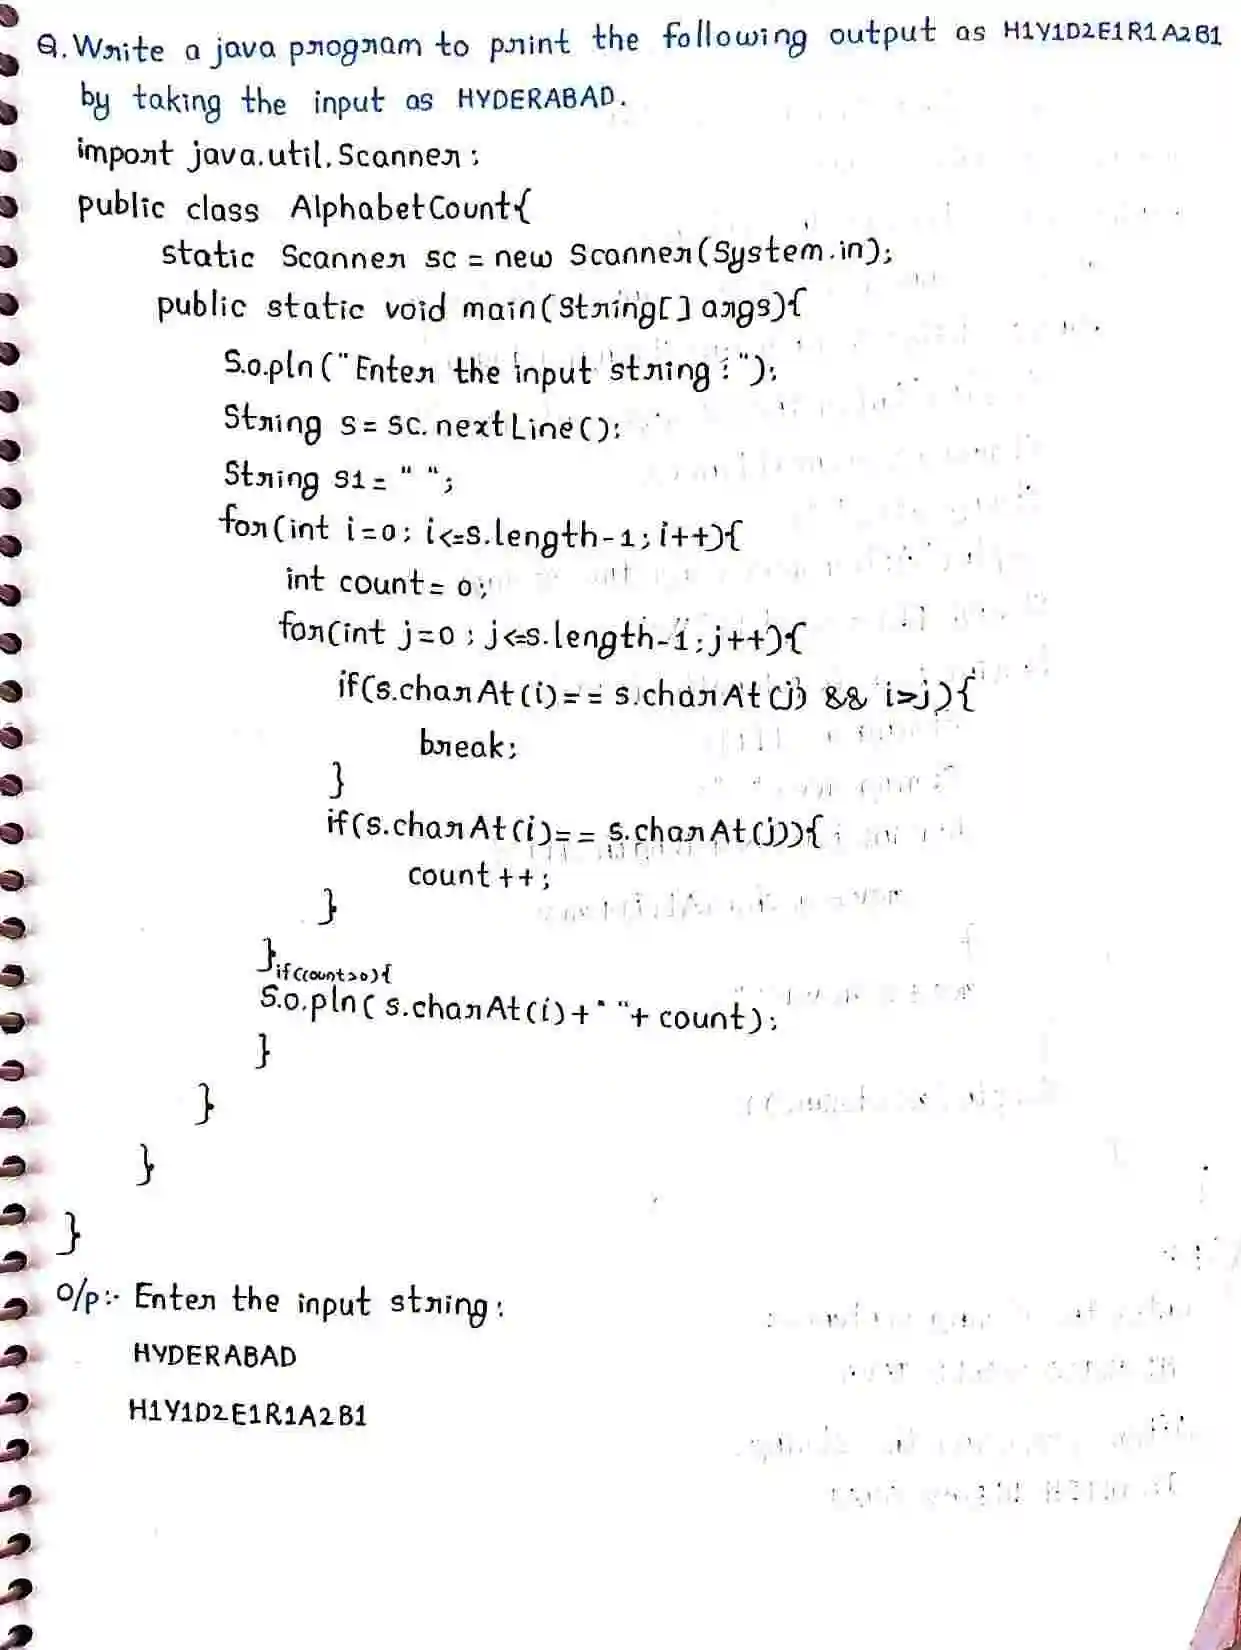 Q. Write a java program to print the following output as H1Y1D2E1R1A2B1
by taking the input as HYDERABAD.
import java.util.Scanner;
public class AlphabetCount{
static Scanner sc = new Scanner(System.in);
public static void main(String[] args){
S.o.pln("Enter the input string :");
String s = sc.nextLine();
String s1 = " ";
for(int i=0; i<=s.length-1; i++){
int count = 0;
for(int j=0; j<=s.length-1; j++){
if(s.charAt(i)==s.charAt(j) && i>j){
break;
}
if(s.charAt(i)==s.charAt(j)){
count++;
}
}
if(count>0){
S.o.pln(s.charAt(i)+" "+count);
}
}
}
}
O/p:- Enter the input string:
HYDERABAD
H1Y1D2E1R1A2B1